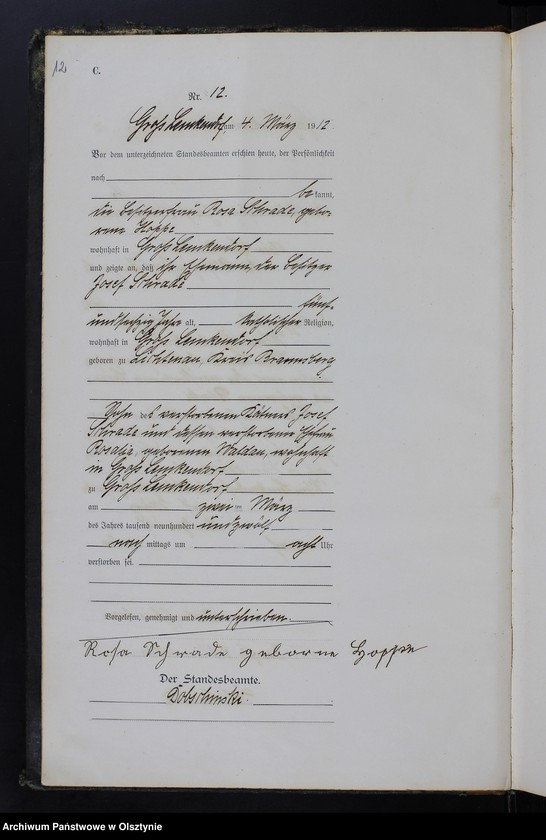 12
C.
Nr. 12.
Groß Lemkendorf am 4. März 1912
Vor dem unterzeichneten Standesbeamten erschien heute, der Persönlichkeit
nach
be kannt,
die Besitzerfrau Rosa Schrade, gebo-
rene Hoppe
wohnhaft in Groß Lemkendorf
und zeigte an, daß ihr Ehemann, der Besitzer
Josef Schrade
fünf-
undsechzig Jahre alt, katholischer Religion,
wohnhaft in Groß Lemkendorf
geboren zu Lichtenau, Kreis Braunsberg
Sohn des verstorbenen Kätners Josef
Schrade und dessen verstorbene Ehefrau
Rosalia, geborenen Waldau, wohnhaft
in Groß Lemkendorf
zu Groß Lemkendorf
am zwei ten März
des Jahres tausend neunhundert und zwölf
nach mittags um acht Uhr
verstorben sei.
Vorgelesen, genehmigt und unterschrieben.
Rosa Schrade geborne Hoppe
Der Standesbeamte.
Dobschinski.
Archiwum Państwowe w Olsztynie